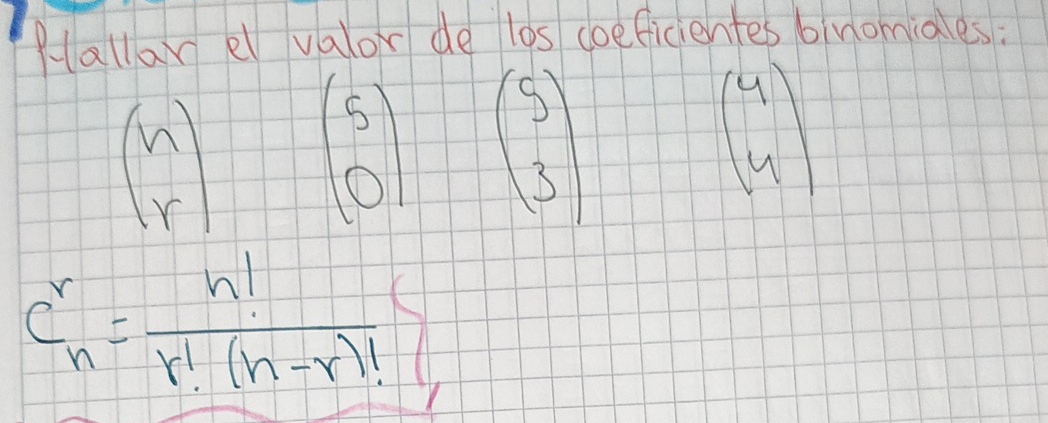 Hallar el valor de los coeficientes binomiales:
(n r) (5 0) (5 3) (4 4)
C_n^r = n! / r! (n-r)!